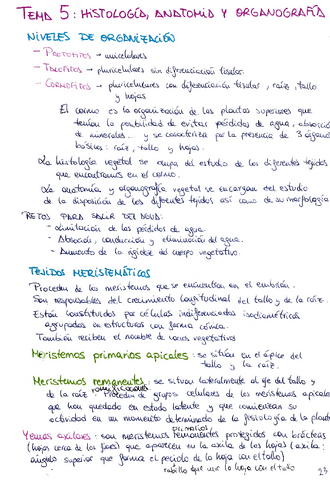 TEMA 5: HISTOLOGÍA, ANATOMIA Y ORGANOGRAFÍA
NIVELES DE ORGANIZACIÓN
- PROTOFITOS → unicelulares
- TALOFITOS → pluricelulares sin diferenciación tisular.
- CORMOFITOS → pluricelulares con diferenciación tisular, raíz, tallo
y hojas
El cormo es la organización de las plantas superiores que
tenían la posibilidad de evitar pérdidas de agua, absorción
de minerales... y se caracteriza por la presencia de 3 órganos
básicos: raíz, tallo y hojas.
La histología vegetal se ocupa del estudio de los diferentes tejidos
que encontramos en el cormo.
La anatomía y organografía vegetal se encargan del estudio
de la disposición de los diferentes tejidos así como de su morfología
RETOS PARA SALIR DEL AGUA:
- Limitación de las pérdidas de agua.
- Absorción, conducción y eliminación del agua.
- Aumento de la rigidez del cuerpo vegetativo.
TEJIDOS MERISTEMÁTICOS
Proceden de los meristemos que se encuentran en el embrión.
Son responsables del crecimiento longitudinal del tallo y de la raíz.
Están constituidos por células indiferenciadas isodiamétricas
agrupadas en estructuras con forma cónica.
También reciben el nombre de conos vegetativos
Meristemos primarios apicales: se sitúan en el ápice del
tallo y la raíz.
Meristemos remanentes: se sitúan lateralmente al eje del tallo y
de la raíz. Proceden de grupos celulares de los meristemos apicales
que han quedado en estado latente y que comienzan su
actividad en un momento determinado de la fisiología de la planta
primarios
Yemas axilares: son meristemos remanentes protegidos con brácteas
(hojas cerca de las flores) que aparecen en la axila de las hojas (axila:
ángulo superior que forma el peciolo de la hoja con el tallo)
rabillo que une la hoja con el tallo